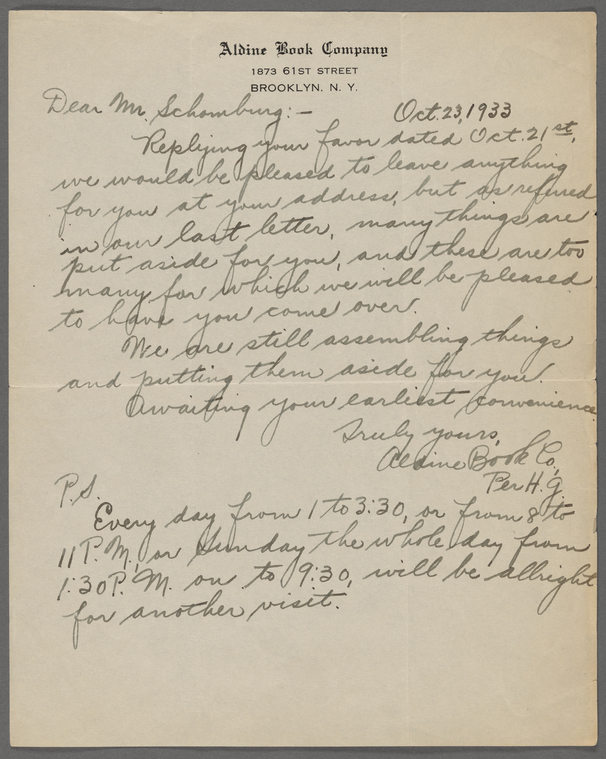 Aldine Book Company
1873 61ST STREET
BROOKLYN, N. Y.
Oct. 23, 1933
Dear Mr Schomburg:—
Replying your favor dated Oct. 21st,
we would be pleased to leave anything
for you at your address, but as refured
in our last letter, many things are
put aside for you, and these are too
many for which we will be pleased
to have you come over.
We are still assembling things
and putting them aside for you.
Awaiting your earliest convenience
Truly yours,
Aldine Book Co.,
Per H. G.
P.S.
Every day from 1 to 3:30, or from 8 to
11 P.M., or Sunday the whole day from
1:30 P.M. on to 9:30, will be allright
for another visit.